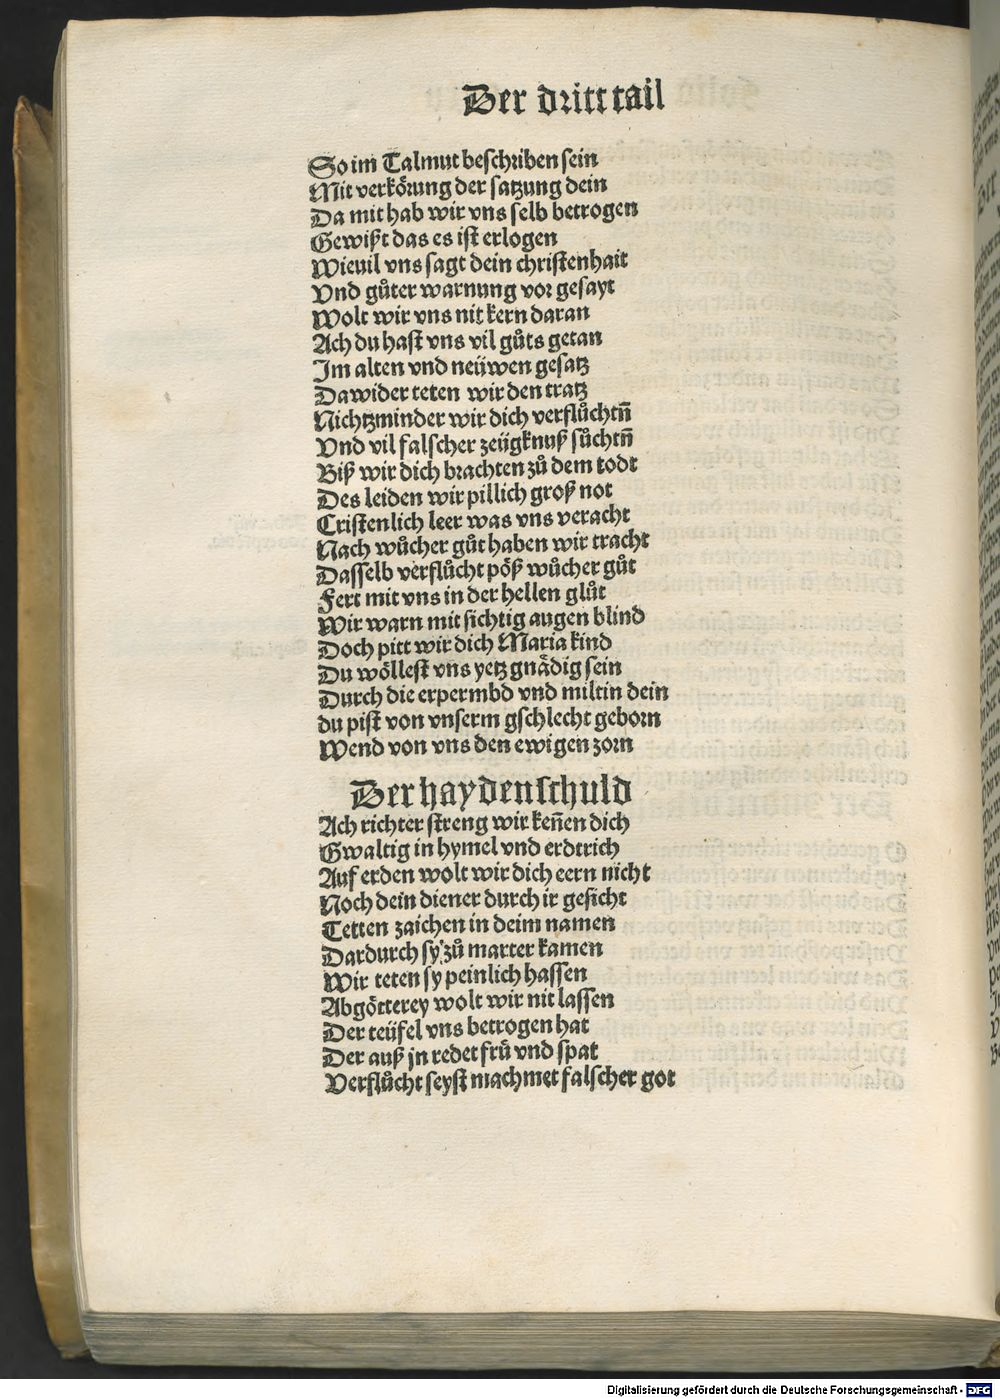 Der dritt tail
So im Talmut beschriben sein
Mit verkörung der satzung dein
Da mit hab wir vns selb betrogen
Gewißt das es ist erlogen
Wieuil vns sagt dein christenhait
Vnd gůter warnung vor gesayt
Wolt wir vns nit kern daran
Ach du hast vns vil gůts getan
Im alten vnd neüwen gesatz
Dawider teten wir den tratz
Nichtzminder wir dich verflůchtn̄
Vnd vil falscher zeügknuß sůchtn̄
Biß wir dich brachten zů dem todt
Des leiden wir pillich groß not
Cristenlich leer was vns veracht
Nach wůcher gůt haben wir tracht
Dasselb verflůcht pöß wůcher gůt
Fert mit vns in der hellen glůt
Wir warn mit sichtig augen blind
Doch pitt wir dich Maria kind
Du wöllest vns yetz gnädig sein
Durch die erpermbd vnd miltin dein
du pist von vnserm gschlecht geborn
Wend von vns den ewigen zorn
Der hayden schuld
Ach richter streng wir keñen dich
Gwaltig in hymel vnd erdtrich
Auf erden wolt wir dich eern nicht
Noch dein diener durch ir gesicht
Tetten zaichen in deim namen
Dardurch sy zů marter kamen
Wir teten sy peinlich hassen
Abgötterey wolt wir nit lassen
Der teüfel vns betrogen hat
Der auß jn redet frü vnd spat
Verflůcht seyst machmet falscher got
Digitalisierung gefördert durch die Deutsche Forschungsgemeinschaft - DFG